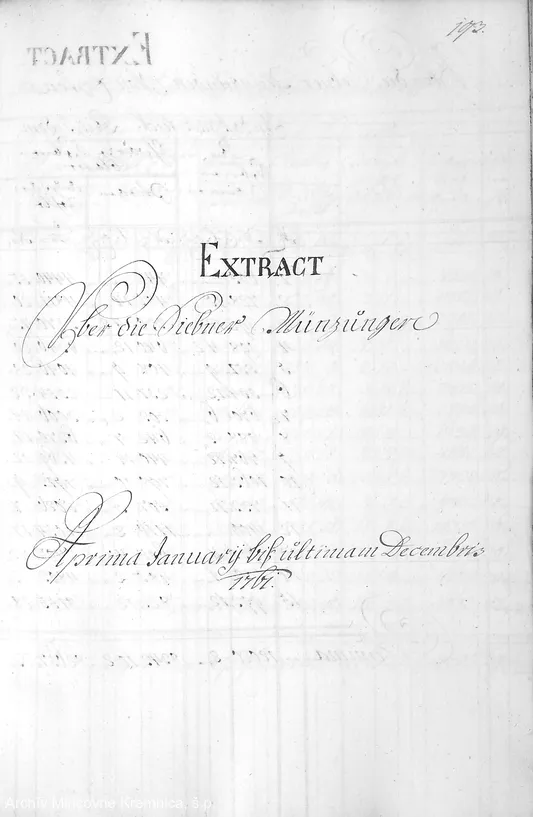 193.
EXTRACT
Über die Siebner Münzüngen
A prima Januarÿ biß ültimam Decembris
1761.
Archív Mincovne Kremnica, š.p.